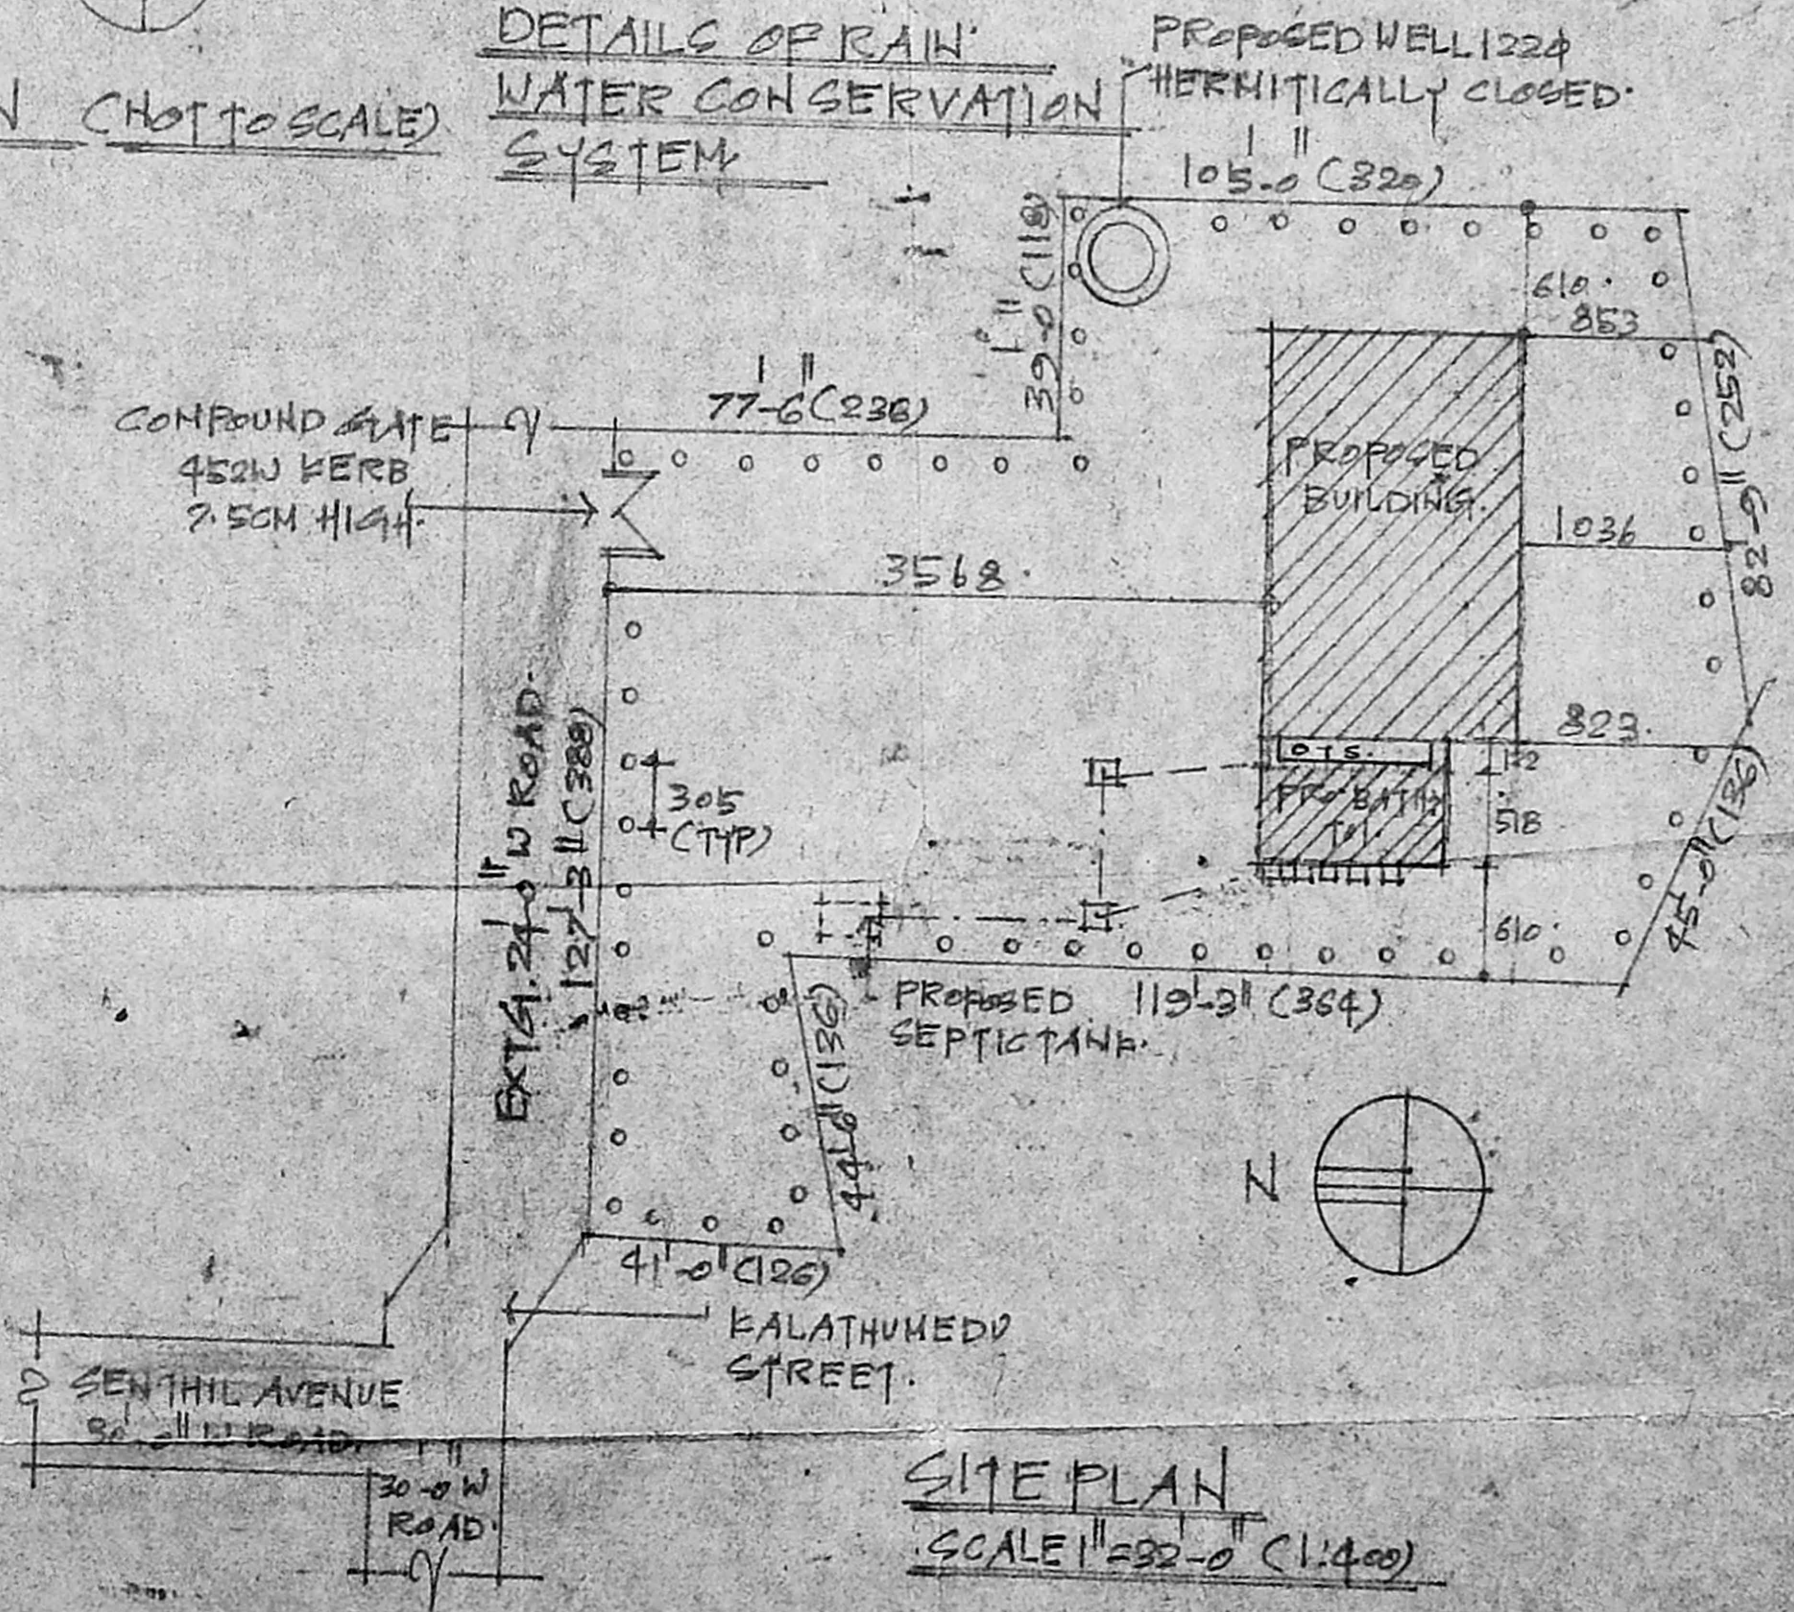 DETAILS OF RAIN
WATER CONSERVATION
SYSTEM
(NOT TO SCALE)
PROPOSED WELL 122φ
HERMITICALLY CLOSED.
105'-0" (320)
39'-0" (118)
610.
853
77'-6" (236)
COMPOUND GATE
452W KERB
7.5CM HIGH.
PROPOSED
BUILDING.
82'-9" (252)
1036
3568.
823.
O T S.
518
610.
305
(TYP)
EXTG. 24'-0" W ROAD.
127'-3" (388)
45'-0" (136)
PROPOSED
SEPTIC TANK.
119'-3" (364)
44'-6" (136)
N
41'-0" (126)
KALATHUMEDU
STREET.
SENTHIL AVENUE
30'-0" W ROAD.
30'-0" W
ROAD.
SITE PLAN
SCALE 1"=32'-0" (1:400)